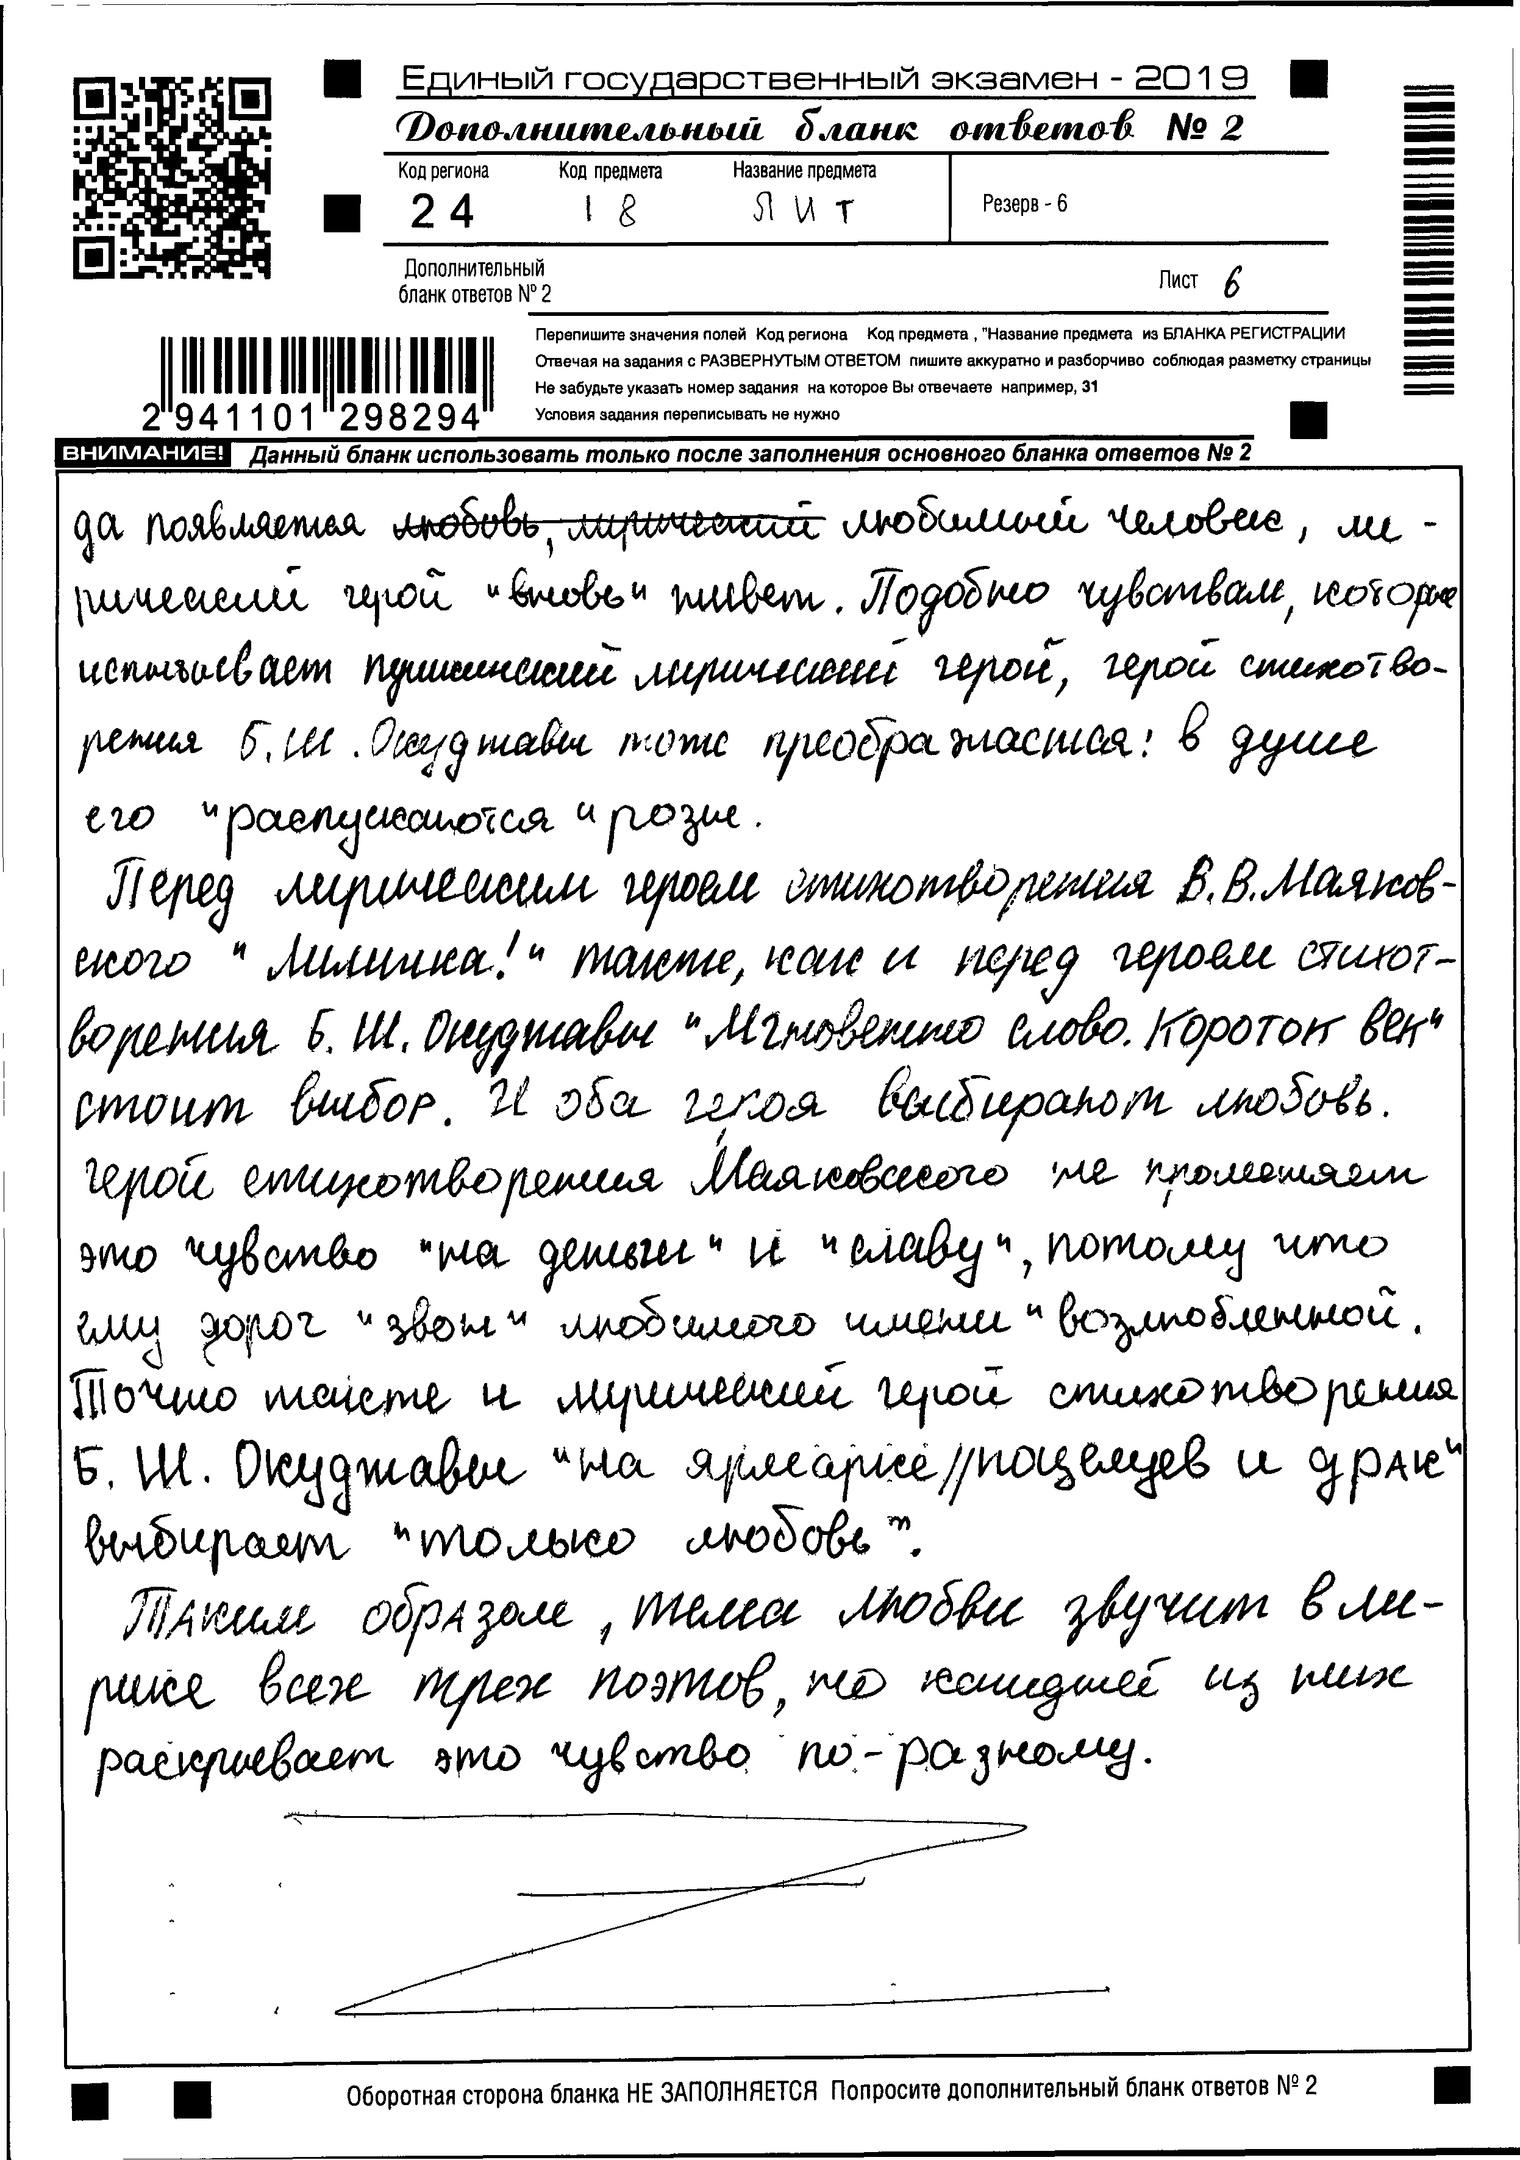 Единый государственный экзамен - 2019
Дополнительный бланк ответов № 2
Код региона Код предмета Название предмета
24 18 ЛИТ Резерв - 6
Дополнительный
бланк ответов № 2
Лист 6
Перепишите значения полей Код региона Код предмета , "Название предмета из БЛАНКА РЕГИСТРАЦИИ
Отвечая на задания с РАЗВЕРНУТЫМ ОТВЕТОМ пишите аккуратно и разборчиво соблюдая разметку страницы
Не забудьте указать номер задания на которое Вы отвечаете например, 31
Условия задания переписывать не нужно
2 941101 298294
ВНИМАНИЕ! Данный бланк использовать только после заполнения основного бланка ответов № 2
да появляется любовь, лирический любимый человек, ли-
рический герой "вновь" живет. Подобно чувствам, которые
испытывает пушкинский лирический герой, герой стихотво-
рения Б.Ш. Окуджавы тоже преображается: в душе
его "распускаются" розы.
Перед лирическим героем стихотворения В.В.Маяков-
ского "Лиличка!" также, как и перед героем стихот-
ворения Б.Ш. Окуджавы "Мгновенно слово. Короток век"
стоит выбор. И оба героя выбирают любовь.
Герой стихотворения Маяковского не променяет
это чувство "на деньги" и "славу", потому что
ему дорог "звон" любимого имени" возлюбленной.
Точно также и лирический герой стихотворения
Б.Ш. Окуджавы "на ярмарке//поцелуев и драк"
выбирает "только любовь".
Таким образом, тема любви звучит в ли-
рике всех трех поэтов, но каждый из них
раскрывает это чувство по-разному.
Оборотная сторона бланка НЕ ЗАПОЛНЯЕТСЯ Попросите дополнительный бланк ответов № 2